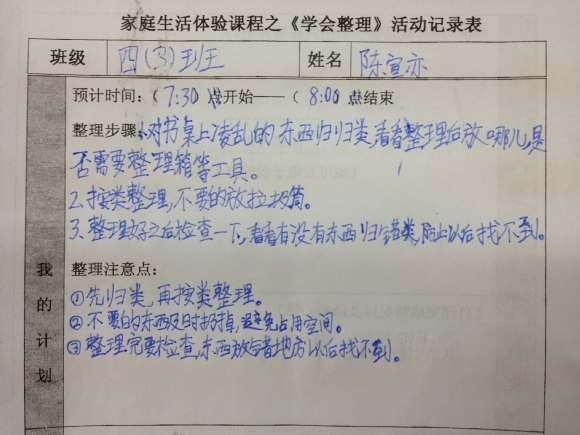 家庭生活体验课程之《学会整理》活动记录表
班级 四(3)班 姓名 陈宣亦
预计时间:(7:30 点开始——(8:00 点结束
整理步骤:1.对书桌上凌乱的东西归归类,看看整理后放哪儿,是
否需要整理箱等工具。
2.按类整理,不要的放垃圾筒。
3.整理好之后检查一下,看看有没有东西归错类,防止以后找不到。
我的计划
整理注意点:
①先归类,再按类整理。
②不要的东西及时扔掉,避免占用空间。
③整理完要检查,东西放错地方以后找不到。